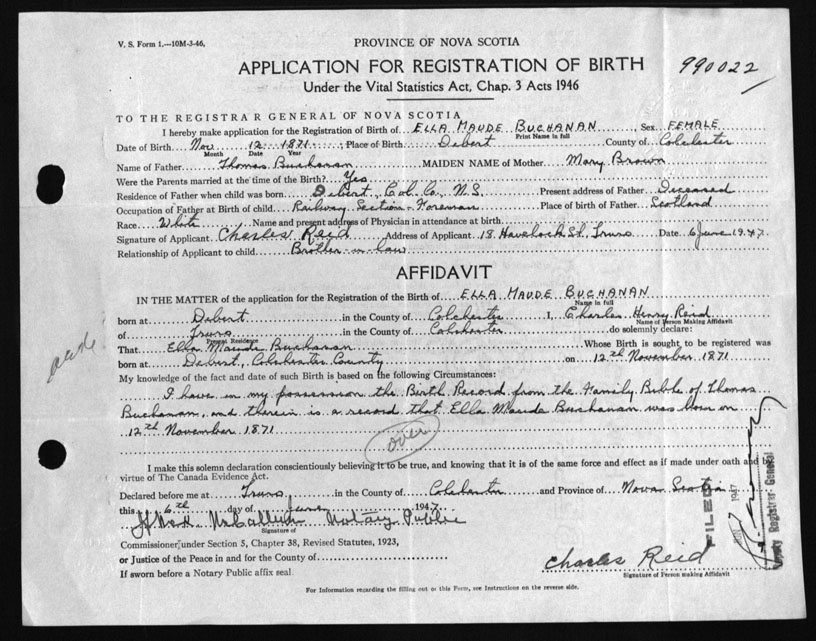 V. S. Form 1.—10M-3-46.
PROVINCE OF NOVA SCOTIA
APPLICATION FOR REGISTRATION OF BIRTH
990022
Under the Vital Statistics Act, Chap. 3 Acts 1946
TO THE REGISTRAR GENERAL OF NOVA SCOTIA
I hereby make application for the Registration of Birth of ELLA MAUDE BUCHANAN, Sex FEMALE
Print Name in full
Date of Birth Nov 12 1871 Place of Birth Debert County of Colchester
Month Date Year
Name of Father Thomas Buchanan MAIDEN NAME of Mother Mary Brown
Were the Parents married at the time of the Birth? Yes
Residence of Father when child was born Debert, Col. Co. N.S. Present address of Father Deceased
Occupation of Father at Birth of child Railway Section-Foreman Place of birth of Father Scotland
Race White Name and present address of Physician in attendance at birth
Signature of Applicant Charles Reid Address of Applicant 18 Havelock St, Truro Date 6 June 1947.
Relationship of Applicant to child Brother-in-law
AFFIDAVIT
IN THE MATTER of the application for the Registration of the Birth of ELLA MAUDE BUCHANAN
Name in full
born at Debert in the County of Colchester I, Charles Henry Reid
Name of Person Making Affidavit
of Truro in the County of Colchester do solemnly declare:
Present Residence
That Ella Maude Buchanan Whose Birth is sought to be registered was
born at Debert, Colchester County on 12th November 1871
My knowledge of the fact and date of such Birth is based on the following Circumstances:
I have in my possession the Birth Record from the Family Bible of Thomas
Buchanan, and therein is a record that Ella Maude Buchanan was born on
12th November 1871
over
I make this solemn declaration conscientiously believing it to be true, and knowing that it is of the same force and effect as if made under oath and by
virtue of The Canada Evidence Act.
Declared before me at Truro, in the County of Colchester and Province of Nova Scotia
this 6th day of June 1947
Notary Public
Signature of
Commissioner under Section 3, Chapter 38, Revised Statutes, 1923,
or Justice of the Peace in and for the County of
If sworn before a Notary Public affix seal
Charles Reid
Signature of Person making Affidavit
FILED
1947
Deputy Registrar General
For Information regarding the filling out of this Form, see Instructions on the reverse side.